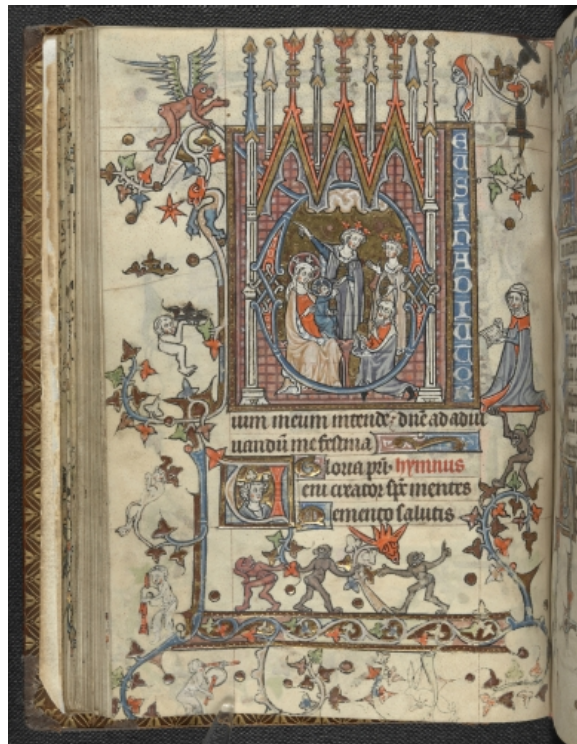 DEUSINADIUTO
rium meum intende· dn̄e ad adiu
uandū me festina
Gloria pr̄i· hymnus
Ueni creator sp̄c mentes
Memento salutis